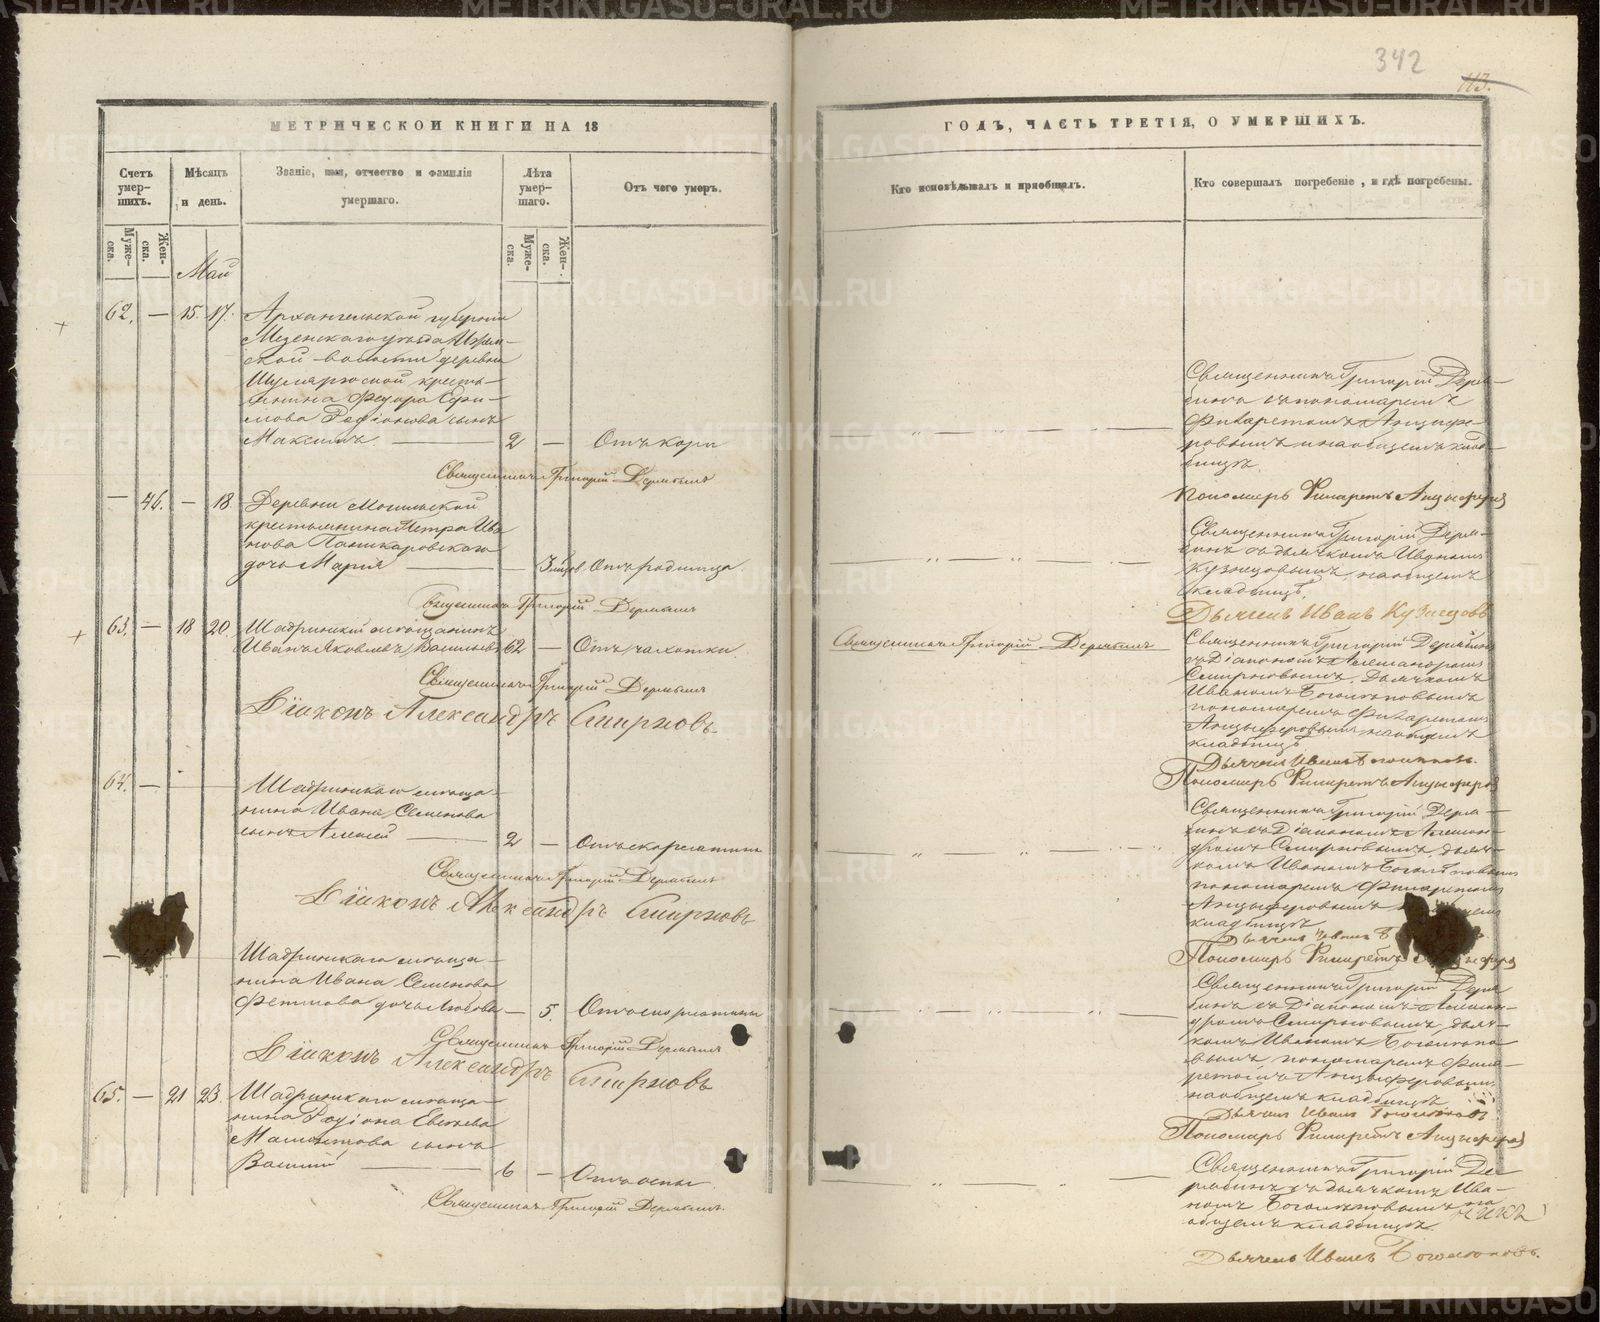 342
113.
МЕТРИЧЕСКОЙ КНИГИ НА 18
Счетъ умер-шихъ.
Мѣсяцъ и день.
Званіе, имя, отчество и фамилія умершаго.
Лѣта умер-шаго.
Отъ чего умеръ.
Муже-ска.
Жен-ска.
Муже-ска.
Жен-ска.
Май
62. — 15. 17.
Архангельской губерніи
Мезенскаго уѣзда Ижем-
ской волости деревни
кресть-
янина Федора Ефи-
мова Родіонова сынъ
Максимъ. — 2 — Отъ кори
Священникъ Григорій Дерябинъ
— 46. — 18
Деревни
крестьянина Петра Ива
нова
дочь Марія — 3 мѣсяц. Отъ родимца.
Священникъ Григорій Дерябинъ
63. — 18 20.
Шадринскій мѣщанинъ
Иванъ Яковлевъ Васильевъ 62 — Отъ чахотки
Священникъ Григорій Дерябинъ
Діаконъ Александръ Смирновъ.
64. —
Шадринскаго мѣща-
нина Ивана Семенова
сынъ Алексей — 2 — Отъ скарлатины
Священникъ Григорій Дерябинъ
Діаконъ Александръ Смирновъ
Шадринскаго мѣща-
нина Ивана Семенова
дочь Любовь — 5. Отъ скарлатины
Священникъ Григорій Дерябинъ
Діаконъ Александръ Смирновъ
65. — 21 23.
Шадринскаго мѣща-
нина Родіона
сынъ
Василій — 6 — Отъ оспы
Священникъ Григорій Дерябинъ.
ГОДЪ, ЧАСТЬ ТРЕТІЯ, О УМЕРШИХЪ.
Кто исповѣдывалъ и пріобщалъ.
Кто совершалъ погребеніе, и гдѣ погребены.
Священникъ Григорій Деря-
бинъ съ пономаремъ
Филаретомъ Анцыфе-
ровымъ на общемъ клад-
бищѣ.
Пономарь Филаретъ Анцыферовъ
Священникъ Григорій Деря-
бинъ съ дьячкомъ Иваномъ
Кузнецовымъ, на общемъ
кладбищѣ.
Дьячекъ Иванъ Кузнецовъ
Священникъ Григорій Дерябинъ
Священникъ Григорій Дерябинъ
съ Діакономъ Александромъ
Смирновымъ, дьячкомъ
Иваномъ Боголѣповымъ
пономаремъ Филаретомъ
Анцыферовымъ на общемъ
кладбищѣ
Дьячекъ Иванъ Боголѣповъ.
Пономарь Филаретъ Анцыферовъ
Священникъ Григорій Деря-
бинъ съ Діакономъ Алексан-
дромъ Смирновымъ, дьяч-
комъ Иваномъ Боголѣповымъ
пономаремъ Филаретомъ
Анцыферовымъ
кладбищѣ
Дьячекъ Иванъ
Пономарь Филаретъ
Священникъ Григорій Деря
бинъ съ Діакономъ Алексан-
дромъ Смирновымъ, дьяч-
комъ Иваномъ Боголѣпо
вымъ, пономаремъ Фила-
ретомъ Анцыферовымъ
на общемъ кладбищѣ
Дьячекъ Иванъ Боголѣповъ
Пономарь Филаретъ Анцыферовъ
Священникъ Григорій Де-
рябинъ съ дьячкомъ Ива-
номъ Боголѣповымъ на
общемъ кладбищѣ.
Дьячекъ Иванъ Боголѣповъ.
METRIKI.GASO-URAL.RU